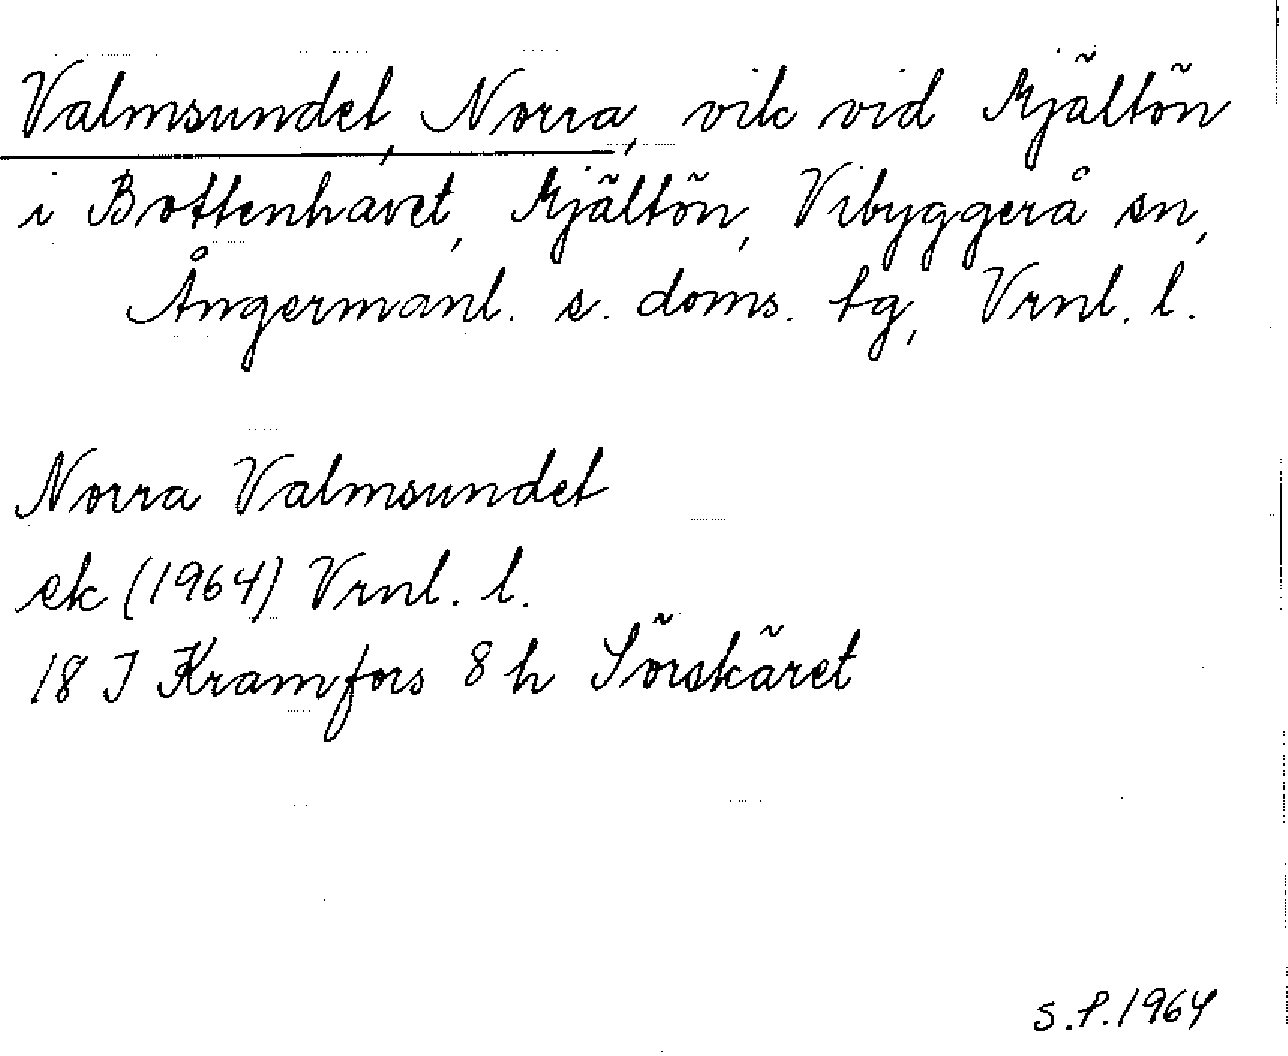 Valmsundet, Norra, vik vid Mjältön
i Bottenhavet, Mjältön, Vibyggerå sn,
Ångermanl. s. doms. tg, Vrnl. l.
Norra Valmsundet
ek (1964) Vrnl. l.
18 J Kramfors 8 h Sörskäret
S.P.1964